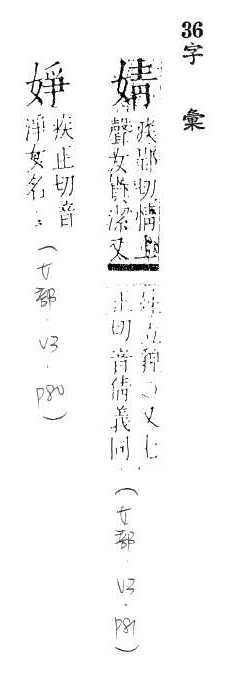 36字彙
婧
疾郢切情上
聲女貞潔又
竦立貌○又七
正切音倩義同
(女部.V3.P81)
婙
疾正切音
淨女名
(女部.V3.P80)